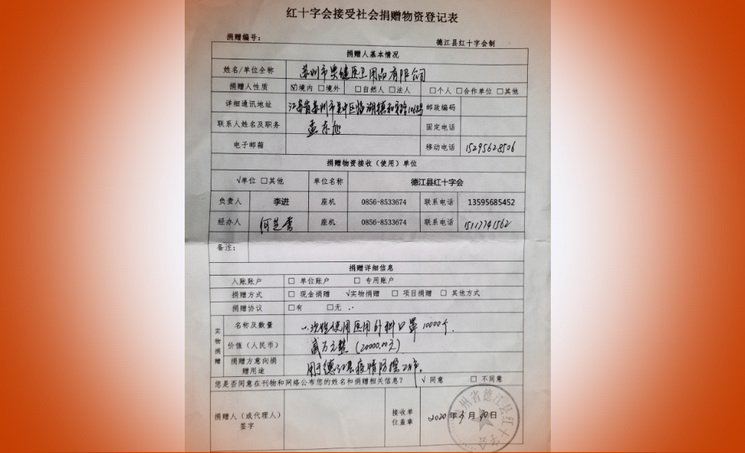 红十字会接受社会捐赠物资登记表
捐赠编号： 德江县红十字会制
捐赠人基本情况
姓名/单位全称 苏州市 医卫用品有限公司
捐赠人性质 ☑境内 □境外 □自然人 □法人 □个人 □合作单位 □其他
详细通讯地址 江苏省苏州市吴中区临湖镇 邮政编码
联系人姓名及职务 孟 固定电话
电子邮箱 移动电话 15295628506
捐赠物资接收（使用）单位
√单位 □其他 单位名称 德江县红十字会
负责人 李进 座机 0856-8533674 联系电话 13595685452
经办人 何芝 座机 0856-8533674 联系电话 15117741562
备注：
捐赠详细信息
入账账户 □ 单位账户 □ 专用账户
捐赠方式 □ 现金捐赠 √实物捐赠 □ 项目捐赠 □ 其他方式
捐赠协议 □有 □无
实物捐赠
名称及数量 一次性使用医用外科口罩10000个.
价值（人民币） 贰万元整 (20000.00元)
捐赠方意向捐赠用途 用于德江县疫情防控工作.
您是否同意在刊物和网络公布您的姓名和捐赠相关信息？ √ 同意 □ 不同意
捐赠人（或代理人）签字
接收单位盖章 2020年 月 日
贵州省德江县红十字会